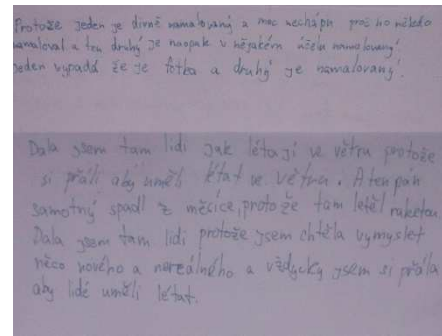 Protože jeden je divně namalovaný a moc nechápu proč ho někdo
namaloval a ten druhý je naopak v nějakém účelu namalovaný.
Jeden vypadá že je fotka a druhý je namalovaný.
Dala jsem tam lidi jak létají ve větru protože
si přáli aby uměli létat ve větru. A ten pán
samotný spadl z měsíce, protože tam letěl raketou.
Dala jsem tam lidi protože jsem chtěla vymyslet
něco nového a nereálného a vždycky jsem si přála
aby lidé uměli létat.